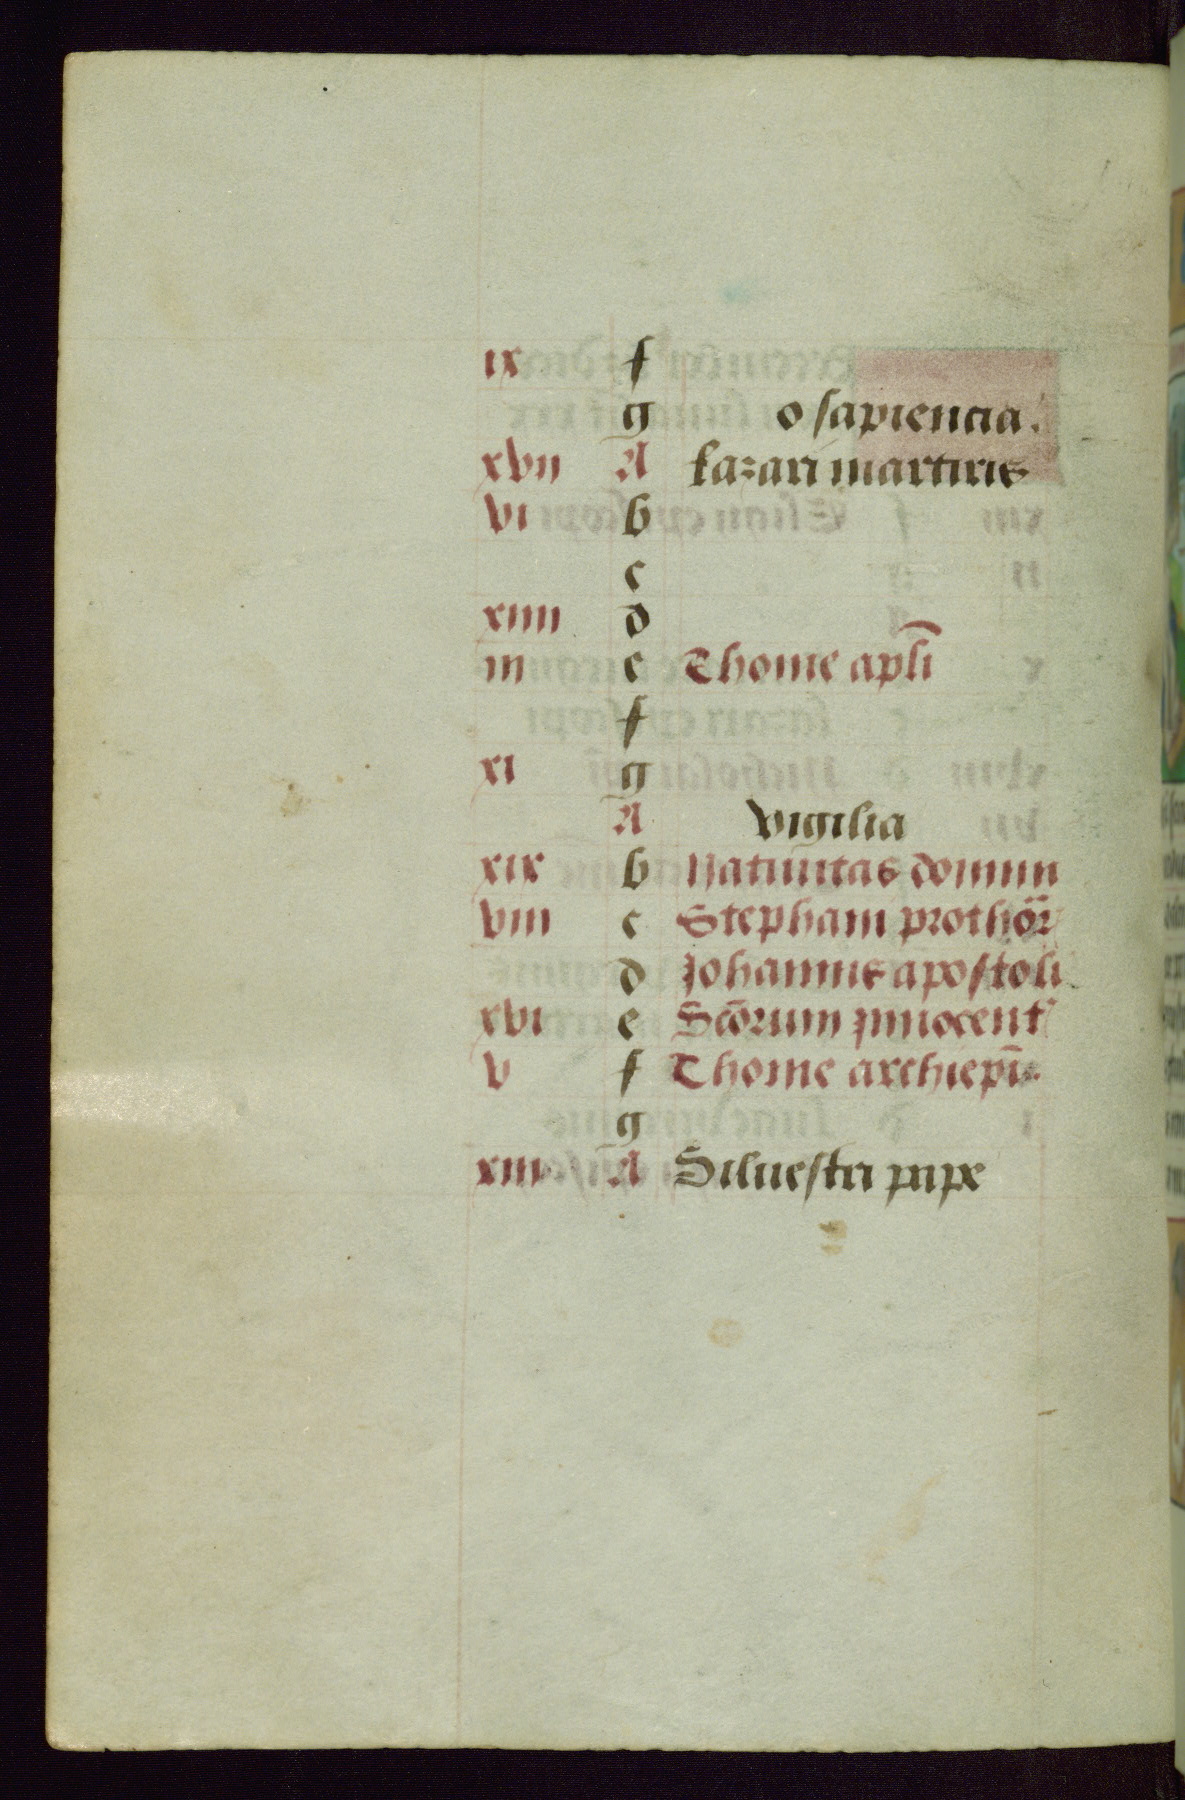 ix f
g o sapiencia.
xvii A Lazari martiris
vi b
c
xiiii d
iii e Thome apłi
f
xi g
A vigilia
xix b Natiuitas domini
viii c Stephani prothōr
d Johannis apostoli
xvi e Scōrum innocent
v f Thome archiepī.
g
xiii A Siluestri pape